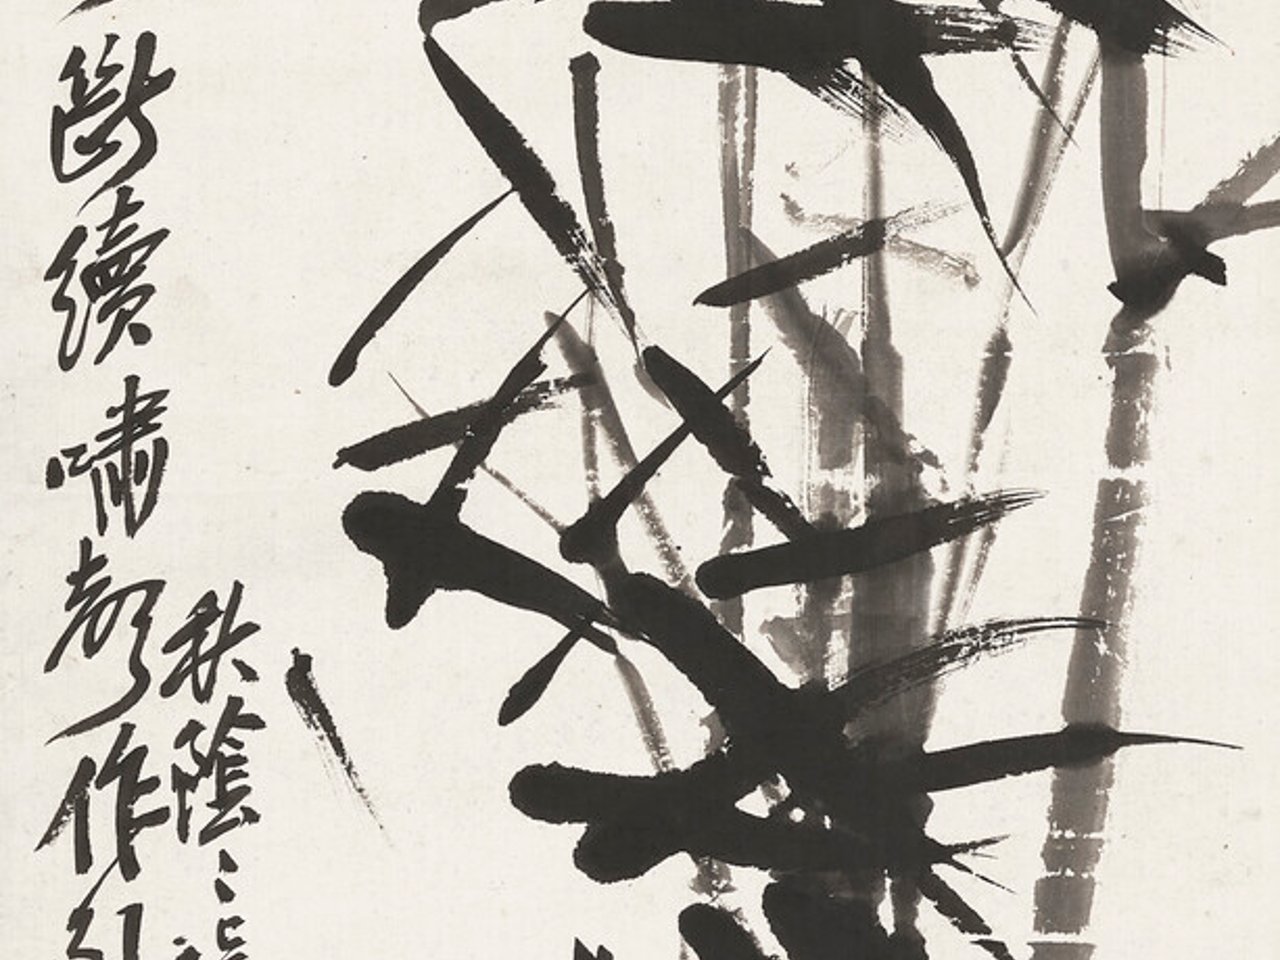 斷續嘯聲作引
秋陰